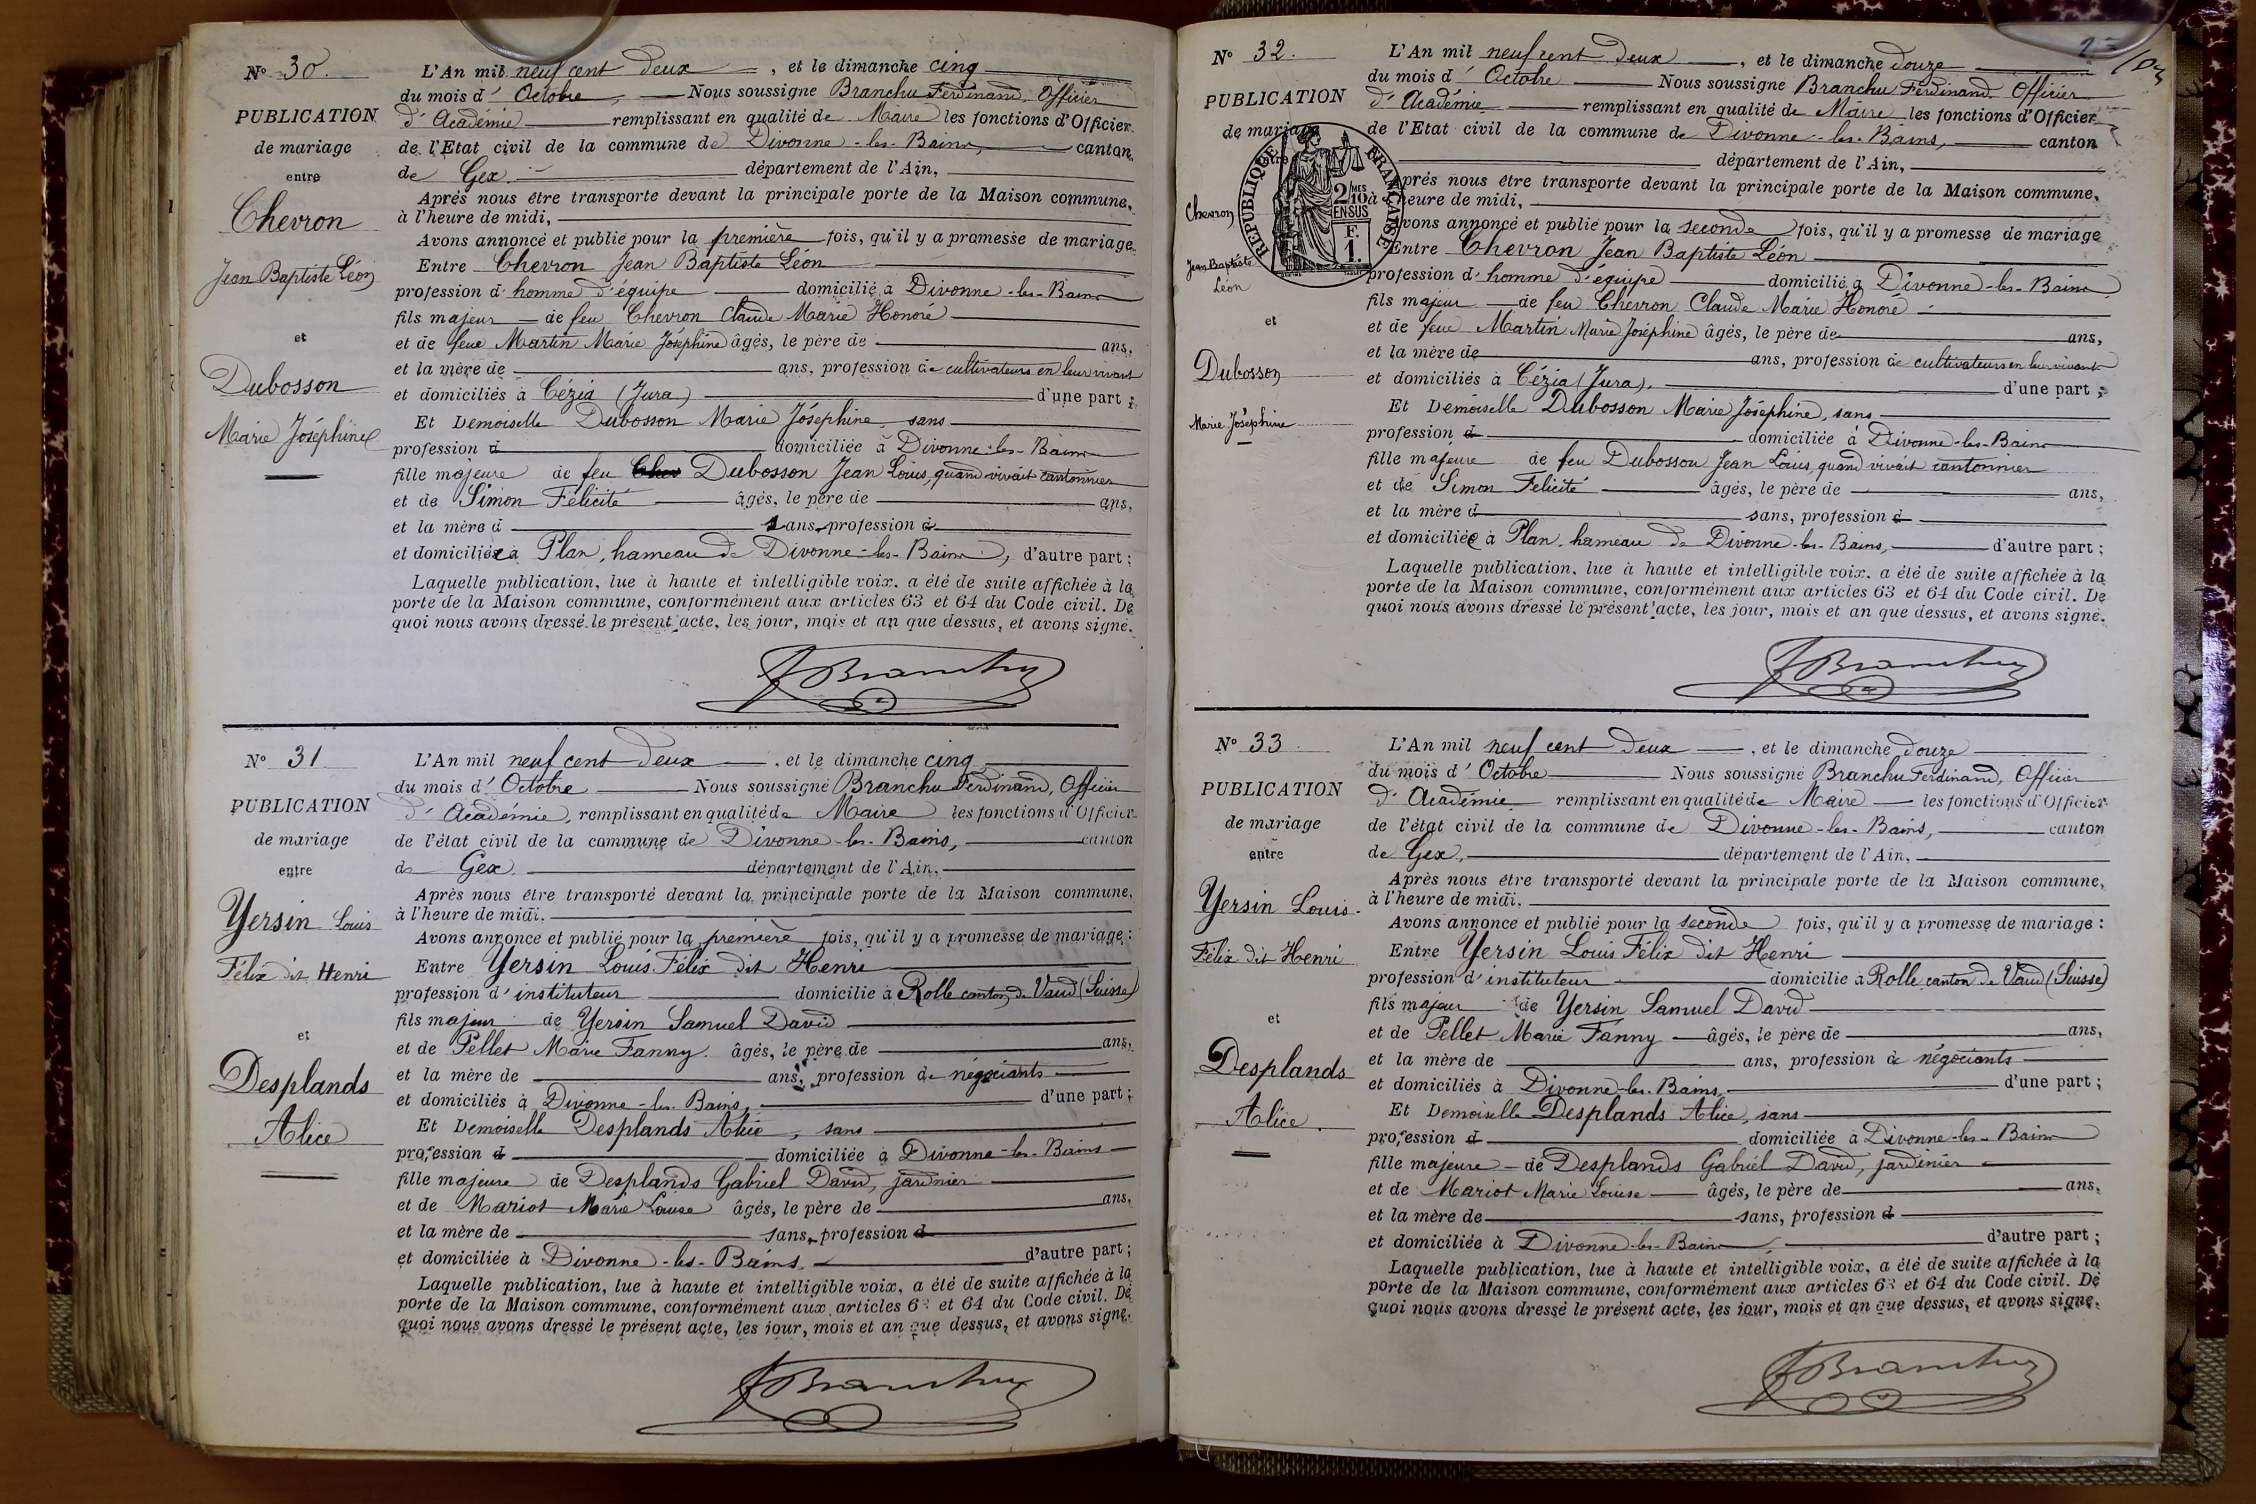 N° 30.
PUBLICATION
de mariage
entre
Chevron
Jean Baptiste Léon
et
Dubosson
Marie Joséphine
L'An mil neuf cent deux, et le dimanche cinq
du mois d'Octobre, Nous soussigné Branchu Ferdinand, Officier
d'Académie remplissant en qualité de Maire les fonctions d'Officier
de l'Etat civil de la commune de Divonne-les-Bains, canton
de Gex. département de l'Ain,
Après nous être transporté devant la principale porte de la Maison commune,
à l'heure de midi,
Avons annoncé et publié pour la première fois, qu'il y a promesse de mariage
Entre Chevron Jean Baptiste Léon
profession d'homme d'équipe domicilié à Divonne-les-Bains
fils majeur de feu Chevron Claude Marie Honoré
et de feue Martin Marie Joséphine âgés, le père de ans,
et la mère de ans, profession de cultivateurs en leur vivant
et domiciliés à Cézia (Jura) d'une part ;
Et Demoiselle Dubosson Marie Joséphine, sans
profession d domiciliée à Divonne-les-Bains
fille majeure de feu Chev Dubosson Jean Louis, quand vivait cantonnier
et de Simon Félicité âgés, le père de ans,
et la mère d sans, profession d
et domiciliée à Plan, hameau de Divonne-les-Bains, d'autre part ;
Laquelle publication, lue à haute et intelligible voix, a été de suite affichée à la
porte de la Maison commune, conformément aux articles 63 et 64 du Code civil. De
quoi nous avons dressé le présent acte, les jour, mois et an que dessus, et avons signé.
F Branchu
N° 31
PUBLICATION
de mariage
entre
Yersin Louis
Félix dit Henri
et
Desplands
Alice
L'An mil neuf cent deux, et le dimanche cinq
du mois d'Octobre Nous soussigné Branchu Ferdinand, Officier
d'Académie, remplissant en qualité de Maire les fonctions d'Officier
de l'état civil de la commune de Divonne-les-Bains, canton
de Gex. département de l'Ain,
Après nous être transporté devant la principale porte de la Maison commune,
à l'heure de midi,
Avons annoncé et publié pour la première fois, qu'il y a promesse de mariage :
Entre Yersin Louis Félix dit Henri
profession d'instituteur domicilié à Rolle canton de Vaud (Suisse)
fils majeur de Yersin Samuel David
et de Pellet Marie Fanny. âgés, le père de ans,
et la mère de ans, profession de négociants
et domiciliés à Divonne-les-Bains, d'une part ;
Et Demoiselle Desplands Alice, sans
profession d domiciliée à Divonne-les-Bains
fille majeure de Desplands Gabriel David, jardinier
et de Mariot Marie Louise âgés, le père de ans,
et la mère de sans, profession d
et domiciliée à Divonne-les-Bains. d'autre part ;
Laquelle publication, lue à haute et intelligible voix, a été de suite affichée à la
porte de la Maison commune, conformément aux articles 63 et 64 du Code civil. De
quoi nous avons dressé le présent acte, les jour, mois et an que dessus, et avons signé.
F Branchu
N° 32.
PUBLICATION
de mariage
entre
Chevron
Jean Baptiste
Léon
et
Dubosson
Marie Joséphine
RÉPUBLIQUE FRANÇAISE
2/10 MES
EN SUS
F.
1.
L'An mil neuf cent deux, et le dimanche douze
du mois d'Octobre Nous soussigné Branchu Ferdinand Officier
d'Académie remplissant en qualité de Maire les fonctions d'Officier
de l'Etat civil de la commune de Divonne-les-Bains, canton
département de l'Ain,
Après nous être transporté devant la principale porte de la Maison commune,
à l'heure de midi,
Avons annoncé et publié pour la seconde fois, qu'il y a promesse de mariage
Entre Chevron Jean Baptiste Léon
profession d'homme d'équipe domicilié à Divonne-les-Bains
fils majeur de feu Chevron Claude Marie Honoré
et de feue Martin Marie Joséphine âgés, le père de ans,
et la mère de ans, profession de cultivateurs en leur vivant
et domiciliés à Cézia (Jura), d'une part ;
Et Demoiselle Dubosson Marie Joséphine, sans
profession d domiciliée à Divonne-les-Bains
fille majeure de feu Dubosson Jean Louis, quand vivait cantonnier
et de Simon Félicité âgés, le père de ans,
et la mère d sans, profession d
et domiciliée à Plan, hameau de Divonne-les-Bains, d'autre part ;
Laquelle publication, lue à haute et intelligible voix, a été de suite affichée à la
porte de la Maison commune, conformément aux articles 63 et 64 du Code civil. De
quoi nous avons dressé le présent acte, les jour, mois et an que dessus, et avons signé.
F Branchu
N° 33.
PUBLICATION
de mariage
entre
Yersin Louis
Félix dit Henri
et
Desplands
Alice.
L'An mil neuf cent deux, et le dimanche douze
du mois d'Octobre Nous soussigné Branchu Ferdinand, Officier
d'Académie remplissant en qualité de Maire les fonctions d'Officier
de l'état civil de la commune de Divonne-les-Bains, canton
de Gex, département de l'Ain,
Après nous être transporté devant la principale porte de la Maison commune,
à l'heure de midi,
Avons annoncé et publié pour la seconde fois, qu'il y a promesse de mariage :
Entre Yersin Louis Félix dit Henri
profession d'instituteur domicilié à Rolle canton de Vaud (Suisse)
fils majeur de Yersin Samuel David
et de Pellet Marie Fanny âgés, le père de ans,
et la mère de ans, profession de négociants
et domiciliés à Divonne-les-Bains, d'une part ;
Et Demoiselle Desplands Alice, sans
profession d domiciliée à Divonne-les-Bains
fille majeure de Desplands Gabriel David, jardinier
et de Mariot Marie Louise âgés, le père de ans,
et la mère de sans, profession d
et domiciliée à Divonne-les-Bains, d'autre part ;
Laquelle publication, lue à haute et intelligible voix, a été de suite affichée à la
porte de la Maison commune, conformément aux articles 63 et 64 du Code civil. De
quoi nous avons dressé le présent acte, les jour, mois et an que dessus, et avons signé.
F Branchu